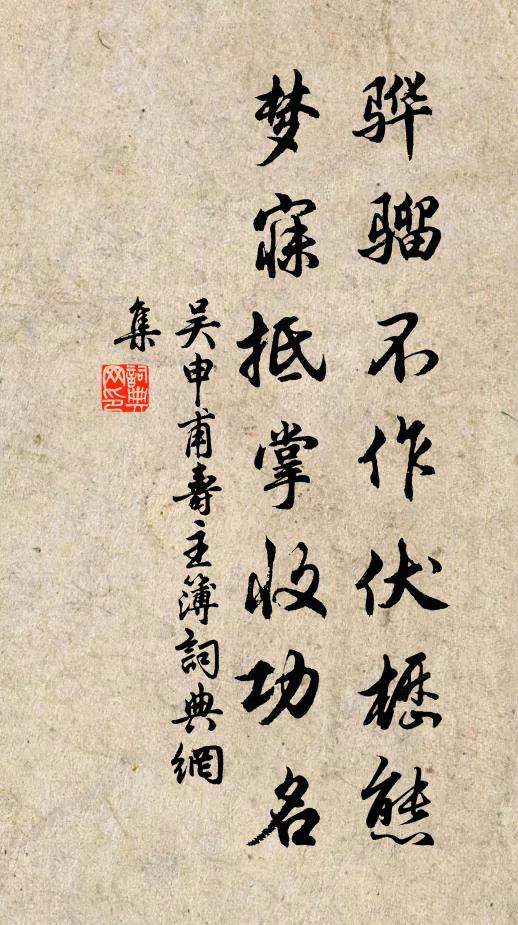 骅骝不作伏枥态
梦寐抵掌收功名
吴申甫寿主簿詞典網
集
詞典
网印